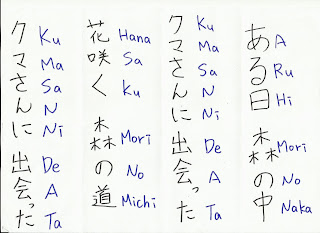 ある日 森の中
A Ru Hi Mori No Naka
クマさんに 出会った
Ku Ma Sa N Ni De A Ta
花咲く 森の道
Hana Sa Ku Mori No Michi
クマさんに 出会った
Ku Ma Sa N Ni De A Ta